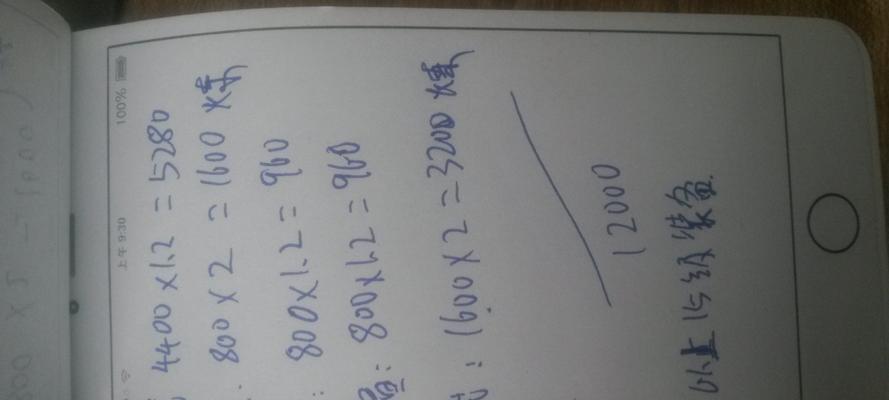 上午 9:30 100%
4400×1.2=5280
800×2=1600 烽
: 800×1.2=960
: 800×1.2=960
: 1600×2=3200 烽
12000
以上15级装备